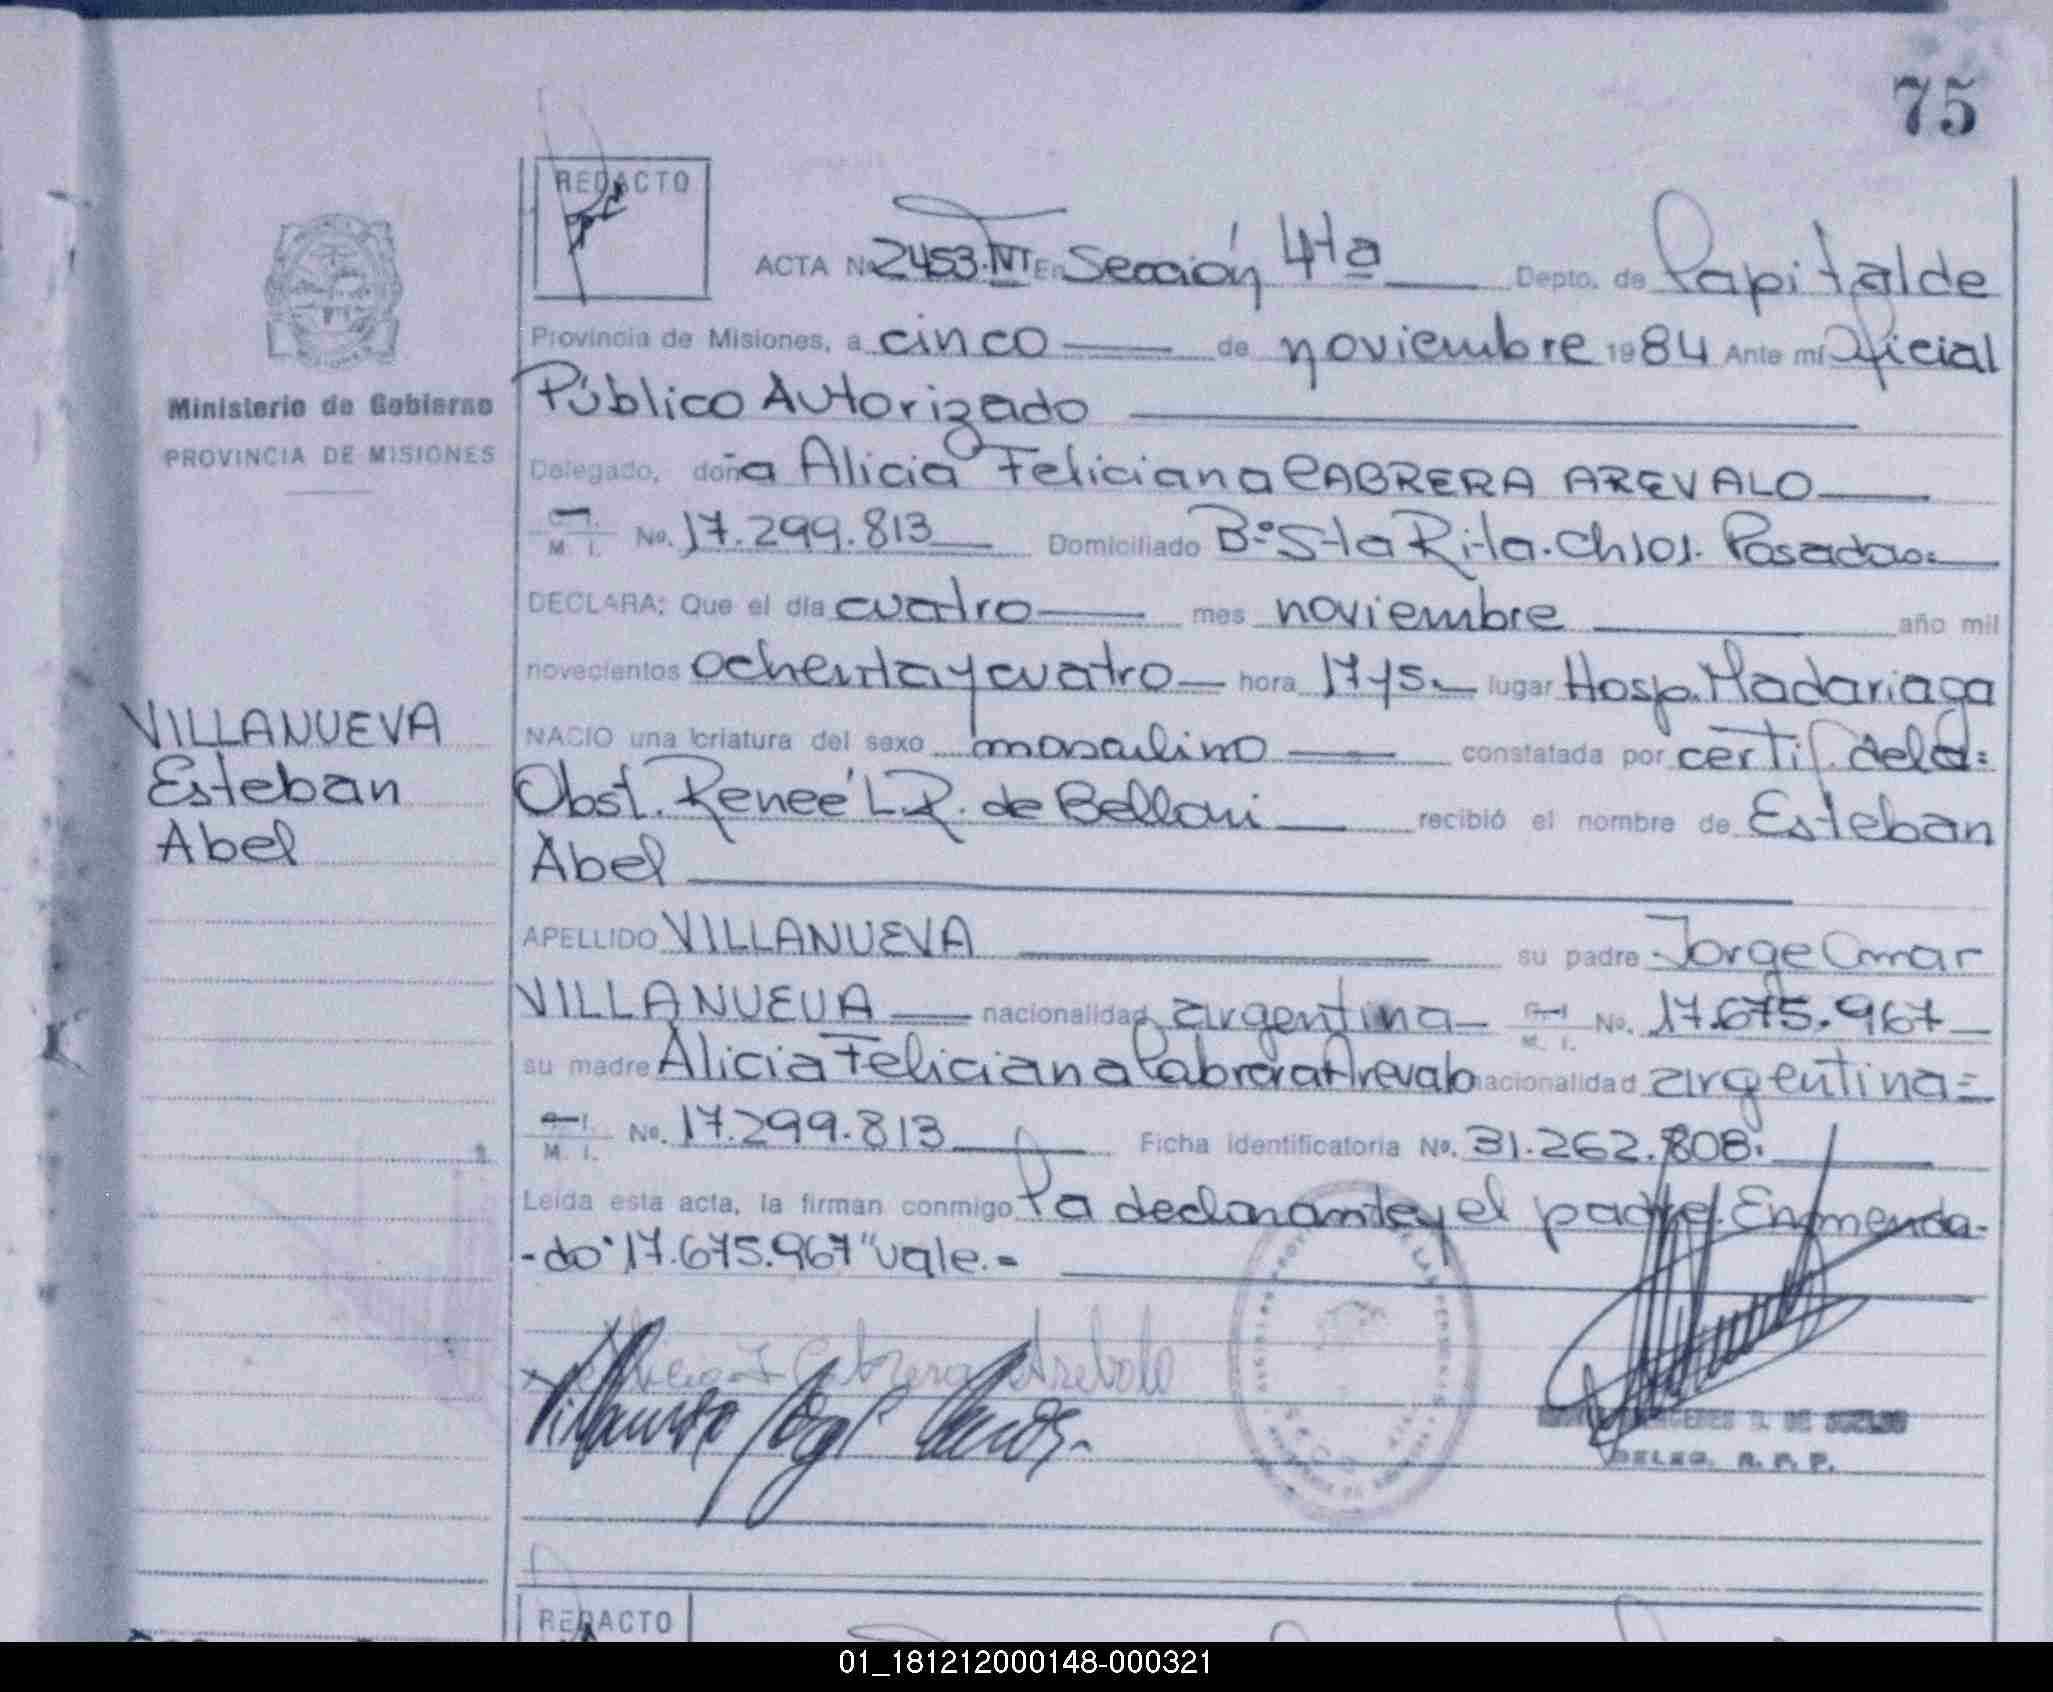 75
REDACTO
ACTA Nº 2453. IVT En Sección 4ta Depto. de Capital de
Provincia de Misiones, a cinco de noviembre 1984 Ante mí Oficial
Ministerio de Gobierno
Público Autorizado
PROVINCIA DE MISIONES
Delegado, doña Alicia Feliciana CABRERA AREVALO
M. I. No. 17.299.813 Domiciliado Bº Sta Rita. Ch 101. Posadas
DECLARA: Que el día cuatro mes noviembre año mil
novecientos ochenta y cuatro hora 17 y 5 lugar Hosp. Madariaga
VILLANUEVA
NACIO una criatura del sexo masculino constatada por certif. de la
Esteban
Obst. Reneé L R. de Belloni recibió el nombre de Esteban
Abel
Abel
APELLIDO VILLANUEVA su padre Jorge Omar
VILLANUEVA nacionalidad argentina M. I. No. 17.675.967
su madre Alicia Feliciana Cabrera Arevalo nacionalidad argentina=
M. I. No. 17.299.813 Ficha identificatoria No. 31.262.808.
Leída esta acta, la firman conmigo la declarante y el padre. Enmenda-
-do "17.675.967" vale.=
x Alicia F Cabrera Arebalo
Villanueva Jorge
D. DE
DELEG. R. P. P.
REDACTO
01_181212000148-000321